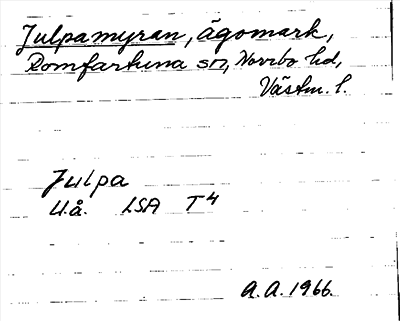 Julpamyran, ägomark,
Romfartuna sn, Norrbo hd,
Västm. l.
Julpa
U.å. LSA T4
A.A. 1966.